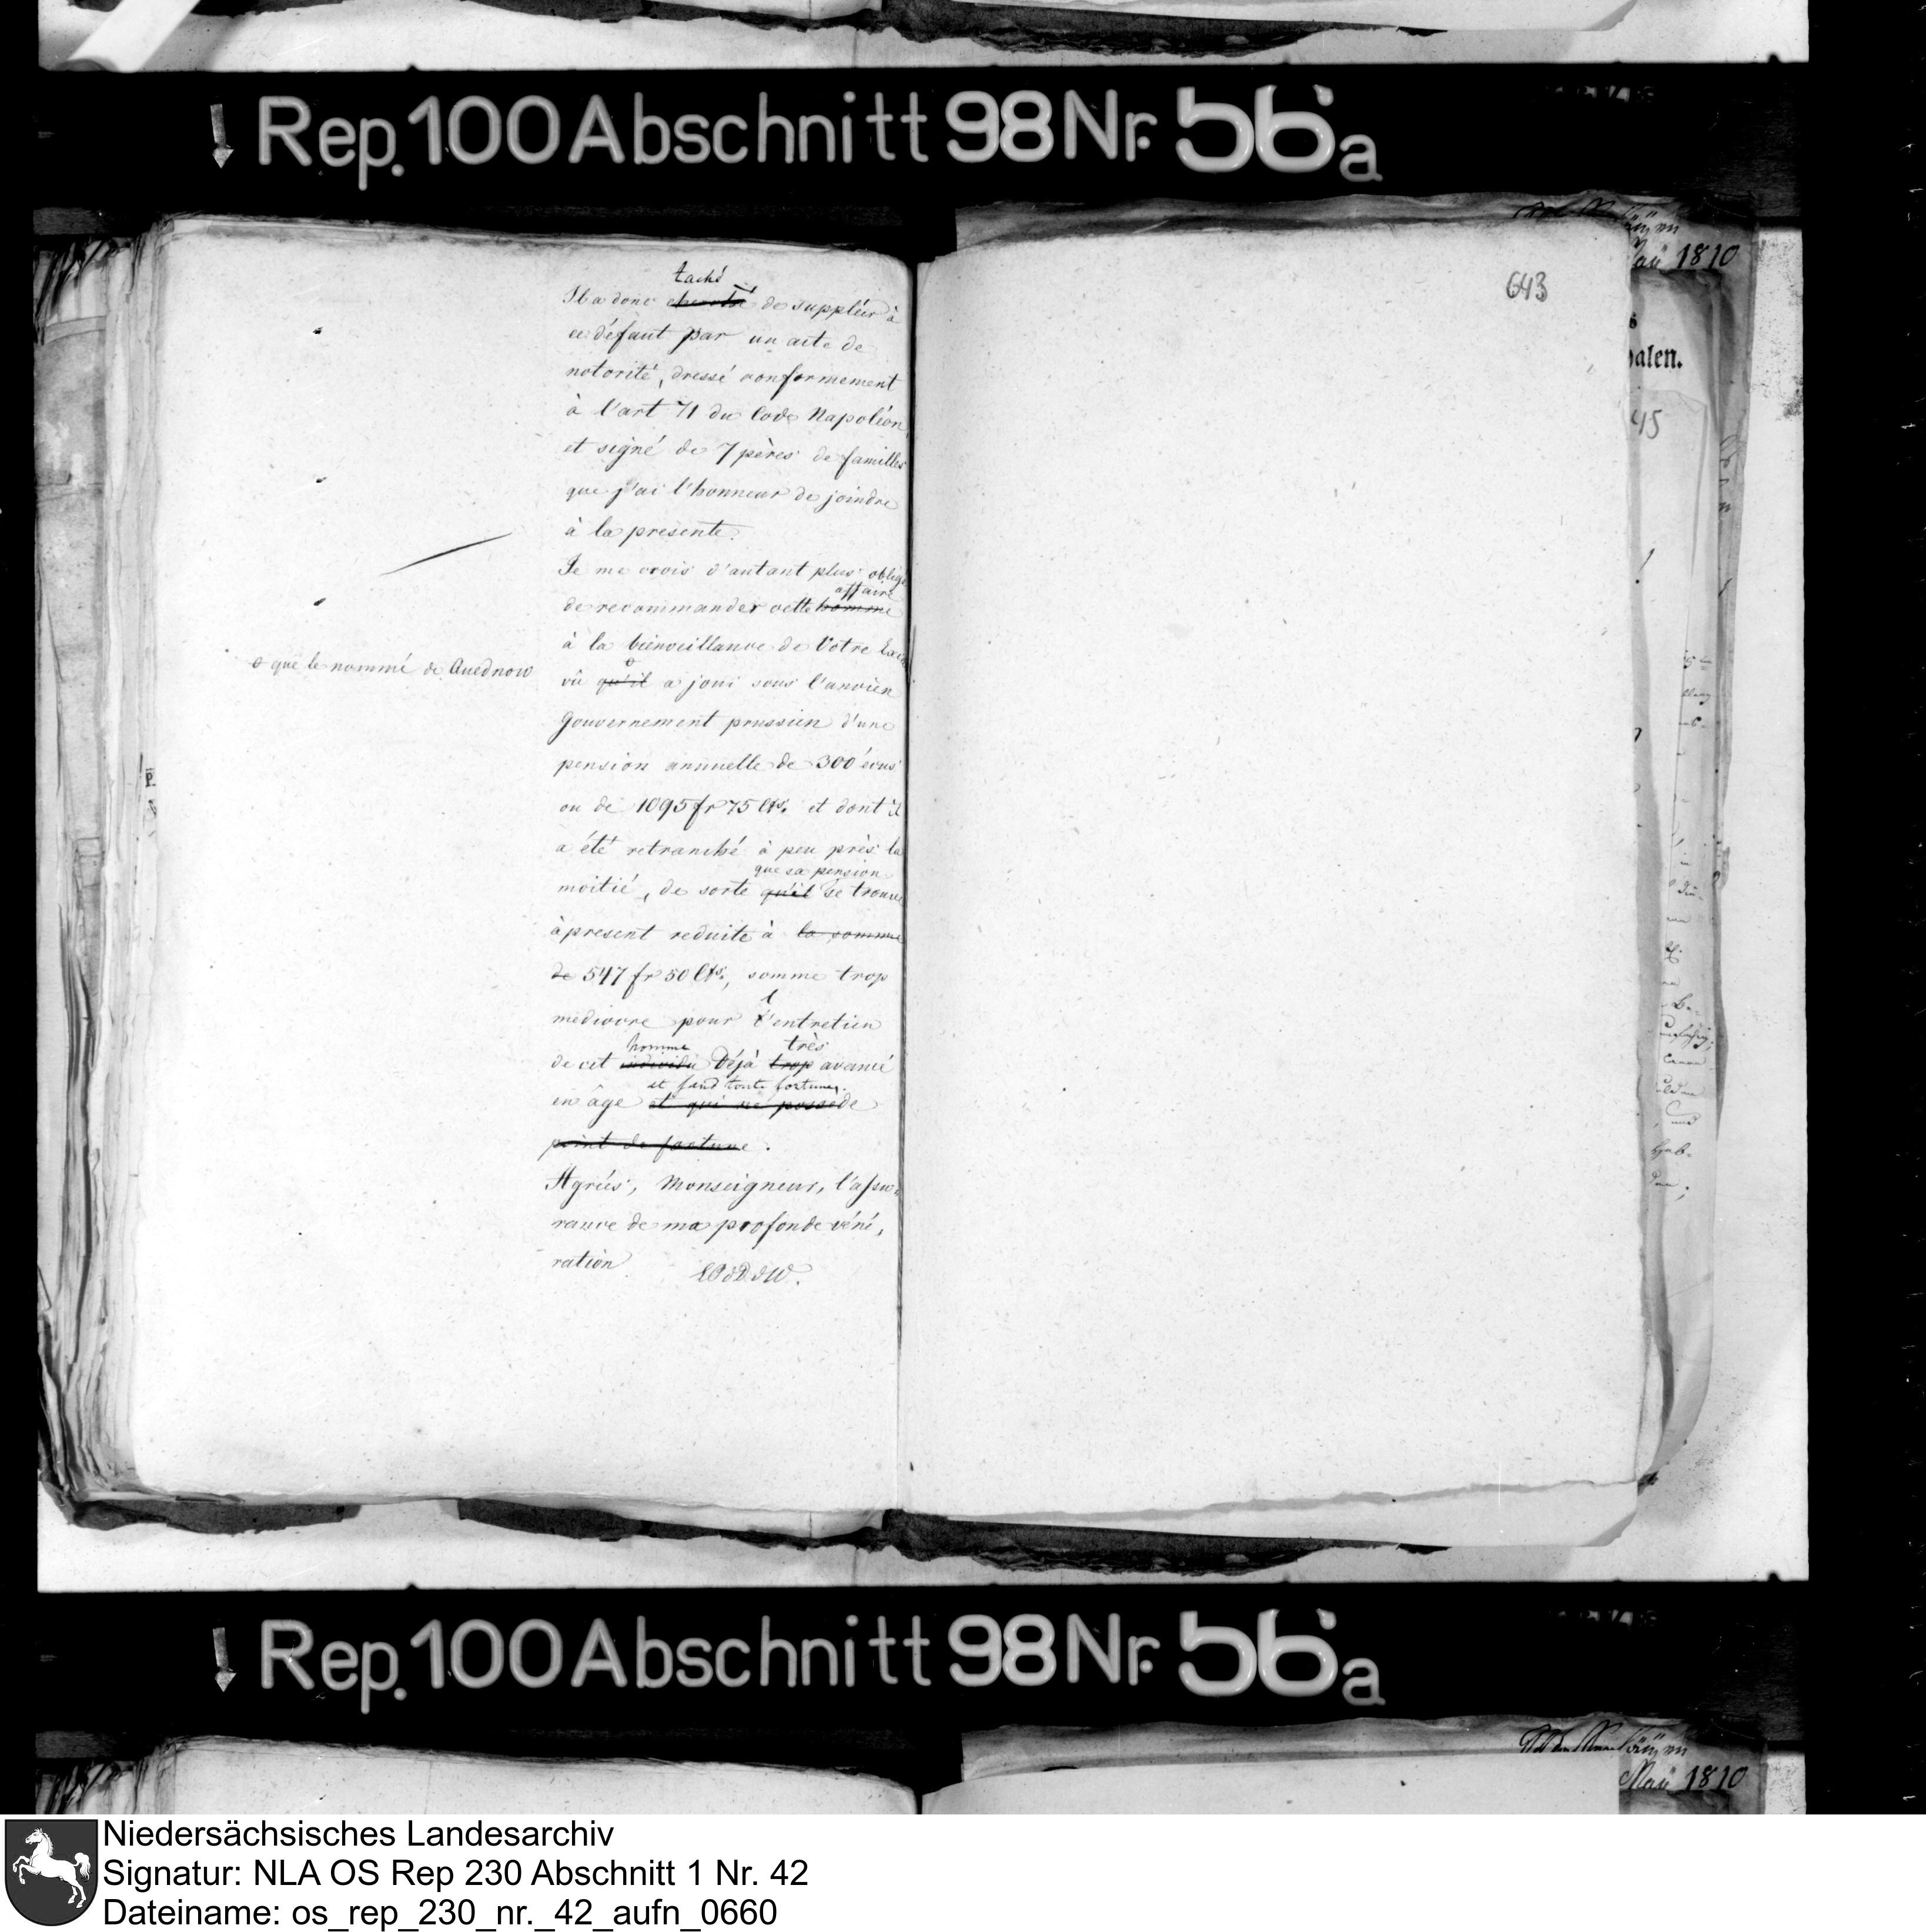 Rep. 100 Abschnitt 98 Nr. 56a
1810
643
alen.
45
taché
Il a donc cherché de suppléir à
ce défaut par un acte de
notorité, dressé conformement
à l'art 71 du Code Napoléon,
et signé de 7 pères de familles
que j'ai l'honneur de joindre
à la presente.
Je me crois d'autant plus obligé
affaire
de recommander cette homme
à la bienveillance de Votre
o que le nommé de Quednow
vû qu'il a joui sous l'ancien
Gouvernement prussien d'une
pension annuelle de 300 écus
ou de 1095 fr 75 Cts. et dont il
a été retranché à peu près la
que sa pension
moitié, de sorte qu'il se trouve
à present reduite à la somme
de 547 fr 50 Cts., somme trop
l
mediocre pour l'entretien
homme très
de cet individu déjà trop avancé
et sand toute fortune.
en âge et qui ne possède
point de fortune.
Agréés, Monseigneur, l'assu-
rance de ma profonde véné,
ration
LPdDdW.
Rep. 100 Abschnitt 98 Nr. 56a
May 1810
Niedersächsisches Landesarchiv
Signatur: NLA OS Rep 230 Abschnitt 1 Nr. 42
Dateiname: os_rep_230_nr._42_aufn_0660